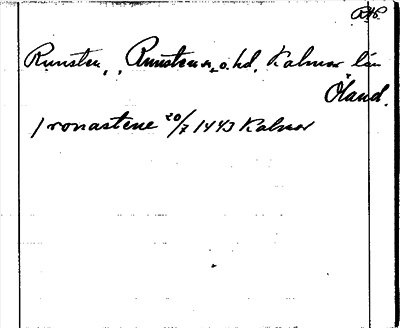 Runsten, Runstens s. o. hd. Kalmar län
Öland.
i ronastene 20/7 1443 Kalmar